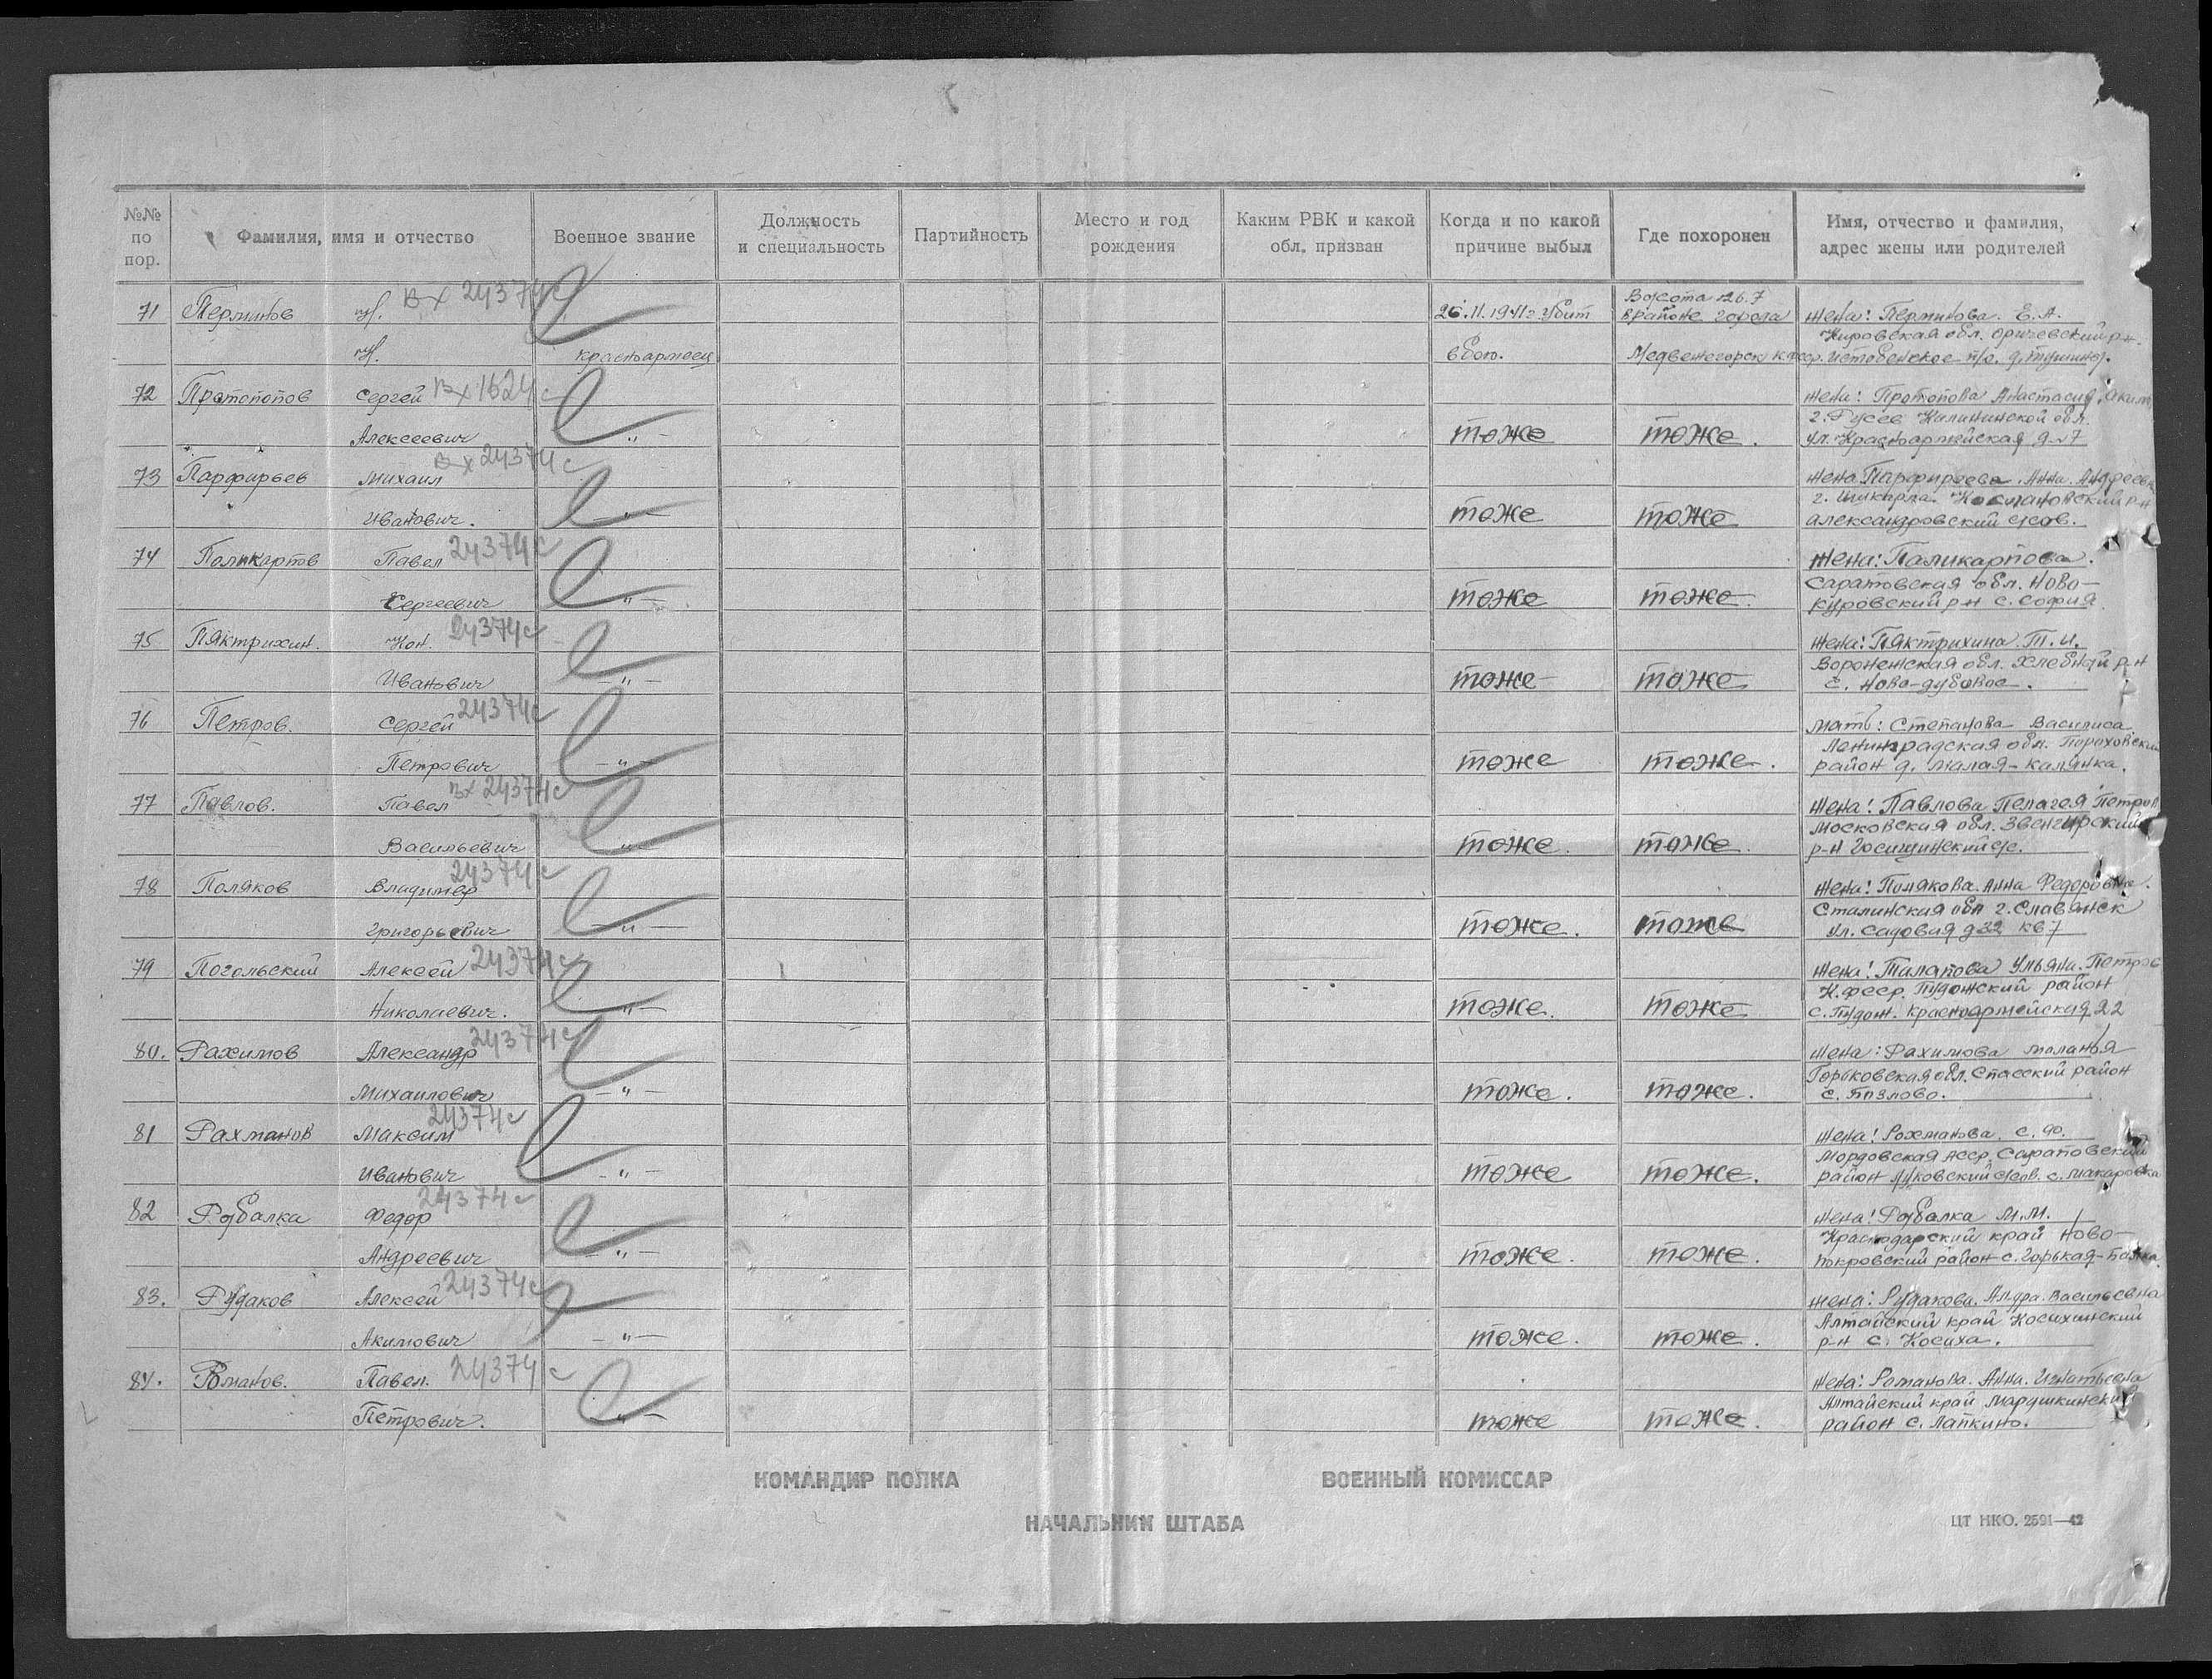 №№ по пор. Фамилия, имя и отчество Военное звание Должность и специальность Партийность Место и год рождения Каким РВК и какой обл. призван Когда и по какой причине выбыл Где похоронен Имя, отчество и фамилия, адрес жены или родителей
71 Перминов Н. Вх 24374с 26.11.1941г. убит Высота 126.7 в районе города жена: Перминова. Е.А.
Н. красноармеец в бою. Медвежегорск Кфсср. Кировская обл. Оричевский р-н. Истобенское п/о.
72 Протопопов Сергей Вх 1624с жена: Протопова Анастасия Аким
Алексеевич -"- тоже тоже. г. Гусев Калининской обл. ул. Красноармейская д-7
73 Парфирьев Михаил Вх 24374с жена Парфиреева. Анна. Андреевн
Иванович. -"- тоже тоже г. Шихрала р-н Александровский с/сов.
74 Поликарпов Павел 24374с жена: Паликарпова.
Сергеевич -"- тоже тоже. Саратовская обл. Ново- р-н с. София
75 Пяктрихин. Кон. 24374с жена: Пяктрихина. Т.И.
Иванович -"- тоже тоже Воронежская обл. Хлебный р-н с. Ново-дубовое.
76 Петров. Сергей 24374с мать: Степанова Василиса
Петрович -"- тоже тоже. Ленинградская обл. Пороховский район д. Малая-Калянка.
77 Павлов. Павел Вх 24374с жена: Павлова Пелагея Петров
Васильевич -"- тоже. тоже. Московская обл. р-н с/с.
78 Поляков Владимир 24374с жена: Полякова. Анна Федоровна.
Григорьевич -"- тоже. тоже Сталинская обл г. Славянск ул. Садовая д 22 кв 7
79 Погольский Алексей 24374с жена: Талапова Ульяна. Петров
Николаевич. -"- тоже. тоже К.фсср. Пудожский район с. Пудож. Красноармейская 22
80. Рахимов Александр 24374с жена: Рахимова Маланья
Михаилович -"- тоже. тоже. Горьковская обл. Спасский район с. Базлово.
81 Рахманов Максим 24374с жена: Рохманова. с.
Иванович -"- тоже тоже. Мордовская АССР. район с/сов. с. Макаровка
82 Рябалка Федор 24374с жена: Рябалка М.М.
Андреевич -"- тоже. тоже. Краснодарский край Ново-покровский район с. Горькая-Балка.
83. Рудаков Алексей 24374с жена: Рудакова. Ал.дра. Васильевна
Акимович -"- тоже. тоже. Алтайский край Косихинский р-н с. Косиха.
84. Романов. Павел. 24374с жена: Романова. Анна. Игнатьевна
Петрович. -"- тоже тоже. Алтайский край Марушкинский район с. Лапкино.
КОМАНДИР ПОЛКА ВОЕННЫЙ КОМИССАР
НАЧАЛЬНИК ШТАБА
ЦТ НКО. 2591—42